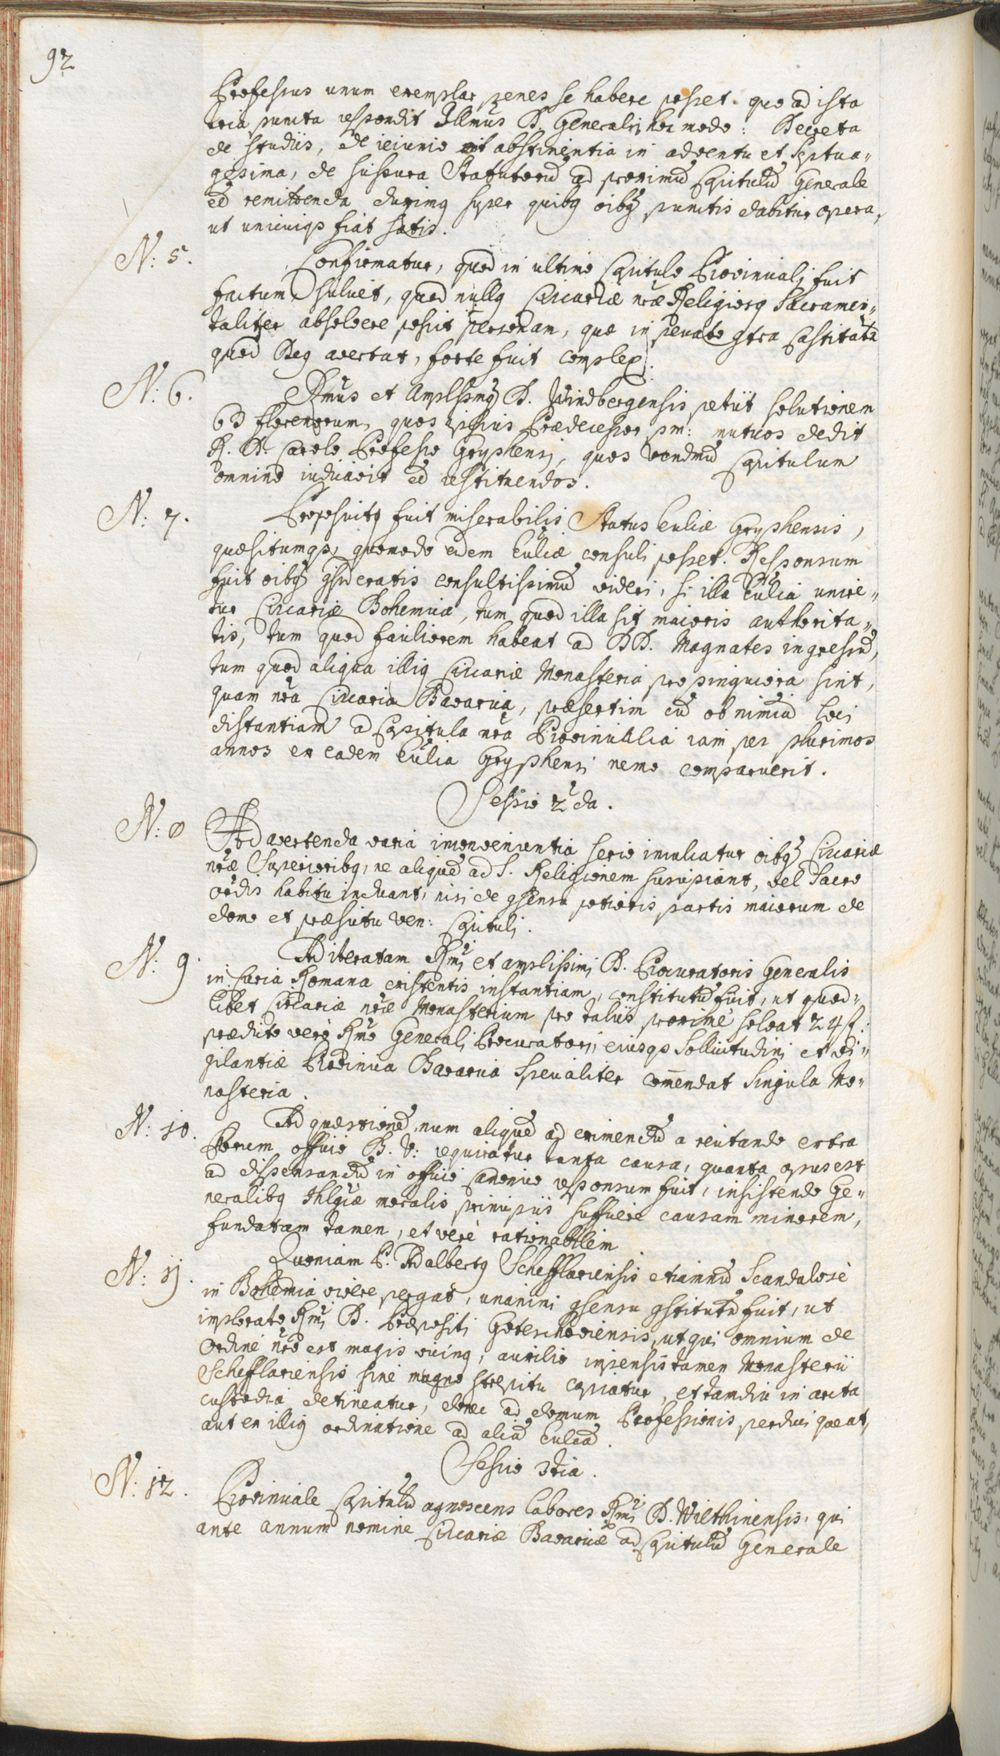 92
Professus unum exemplar penes se habere posset. quo ad ista
tria puncta respondit Illmus D. Generalis hoc modo: Decreta
de studiis, de ieiunio et abstinentia in adventu et septua=
gesima, de supura Statutorũ ad proximũ Capitulũ Generale
eẽ remittenda duximq super quibq oibq punctis dabitur opera,
ut unicuiqs fiat satis.
N: 5. Confirmatur, quod in ultimo Capitulo Provinciali fuit
factum Siluit, quod nullq Circariæ nræ Religiosq Sacramen=
taliter absolvere possit personam, quæ in peccato gtra Castitatẽ
quod Deq avertat, forte fuit complex.
N: 6. Rmus et Amplssimq D. Windbergensis petiit solutionem
60 florenorum, quos ipsius Prædecessor pm: mutuos dedit
R. D. Carolo Professo Gryphensi, quos Vendmũ Capitulum
omnino iudicavit eẽ restituendos.
N: 7. Propositq fuit miserabilis Status Ecclíæ Gryphensis,
quæsitumqs, quomodo eidem Eccliæ consuli posset. Responsum
fuit oibq gsideratis consultissimũ videri, si illa Ecclia unire=
tur Circariæ Bohemicæ, tum quod illa sit maioris authorita=
tis, tum quod faciliorem habeat ad DD. Magnates ingressũ,
tum quod aliqua illiq Circariæ Monasteria propinquiora sint,
quam nra Circaria Bavarica, præsertim cũ ob nimiã loci
distantiam ad Capitula nra Provincialia iam per plurimos
annos ex eadem Ecclia Gryphensi nemo comparuerit.
Sessio 2da.
N: 8 Ad avertenda varia inconvenientia serio inculcatur oibq Circariæ
nræ Superioribq, ne aliquẽ ad S. Religionem suscipiant, vel Sacro
ordis habitu induant, nisi de gsensu potioris partis maiorum de
domo et præscitu Ven: Capituli.
N: 9. Ad iteratam Rmi et amplissimi D. Procuratoris Generalis
in Curia Romana existentis instantiam, constitutũ fuit, ut quod=
libet Circariæ nræ Monasterium pro taliis proxime solvat 24 f.
prædicto vero Rmo Generali Procuratori, eiusqs Sollicitudini et vi=
gilantiæ Provincia Bavarica specialiter comendat singula Mo=
nasteria.
N: 10. Ad quæstionẽ, num aliquẽ ad eximendũ a recitando extra
Chorum officio B. V: requiratur tanta causa, quanta opus est
ad dispensandũ in officio Canonico responsum fuit, insistendo Ge=
neralibq Thlgiæ moralis principiis sufficere causam minorem,
fundatam tamen, et vere rationabilem
N: 11. Quoniam P. Adalbertq Schefftlariensis etiamnũ Scandalosè
in Bohemia vivere pergat, unanimi gsensu gstitutũ fuit, ut
implorato Rmi D. Præpositi Goteschoviensis, utqui omnium de
Ordine nro est magis vicinq, auxilio impensis tamen Monasterii
Schefftlariensis sine magno strepitu capiatur, et tamdiu in arcta
custodia detineatur, donec ad domum Professionis perduci queat,
aut ex illiq ordinatione ad aliã eccliã.
Sessio 3tia.
N: 12. Provinciale Capitulũ agnoscens labores Rmi D. Wilthinensis, qui
ante annum nomine Circariæ Bavaricæ ad Capitulũ Generale